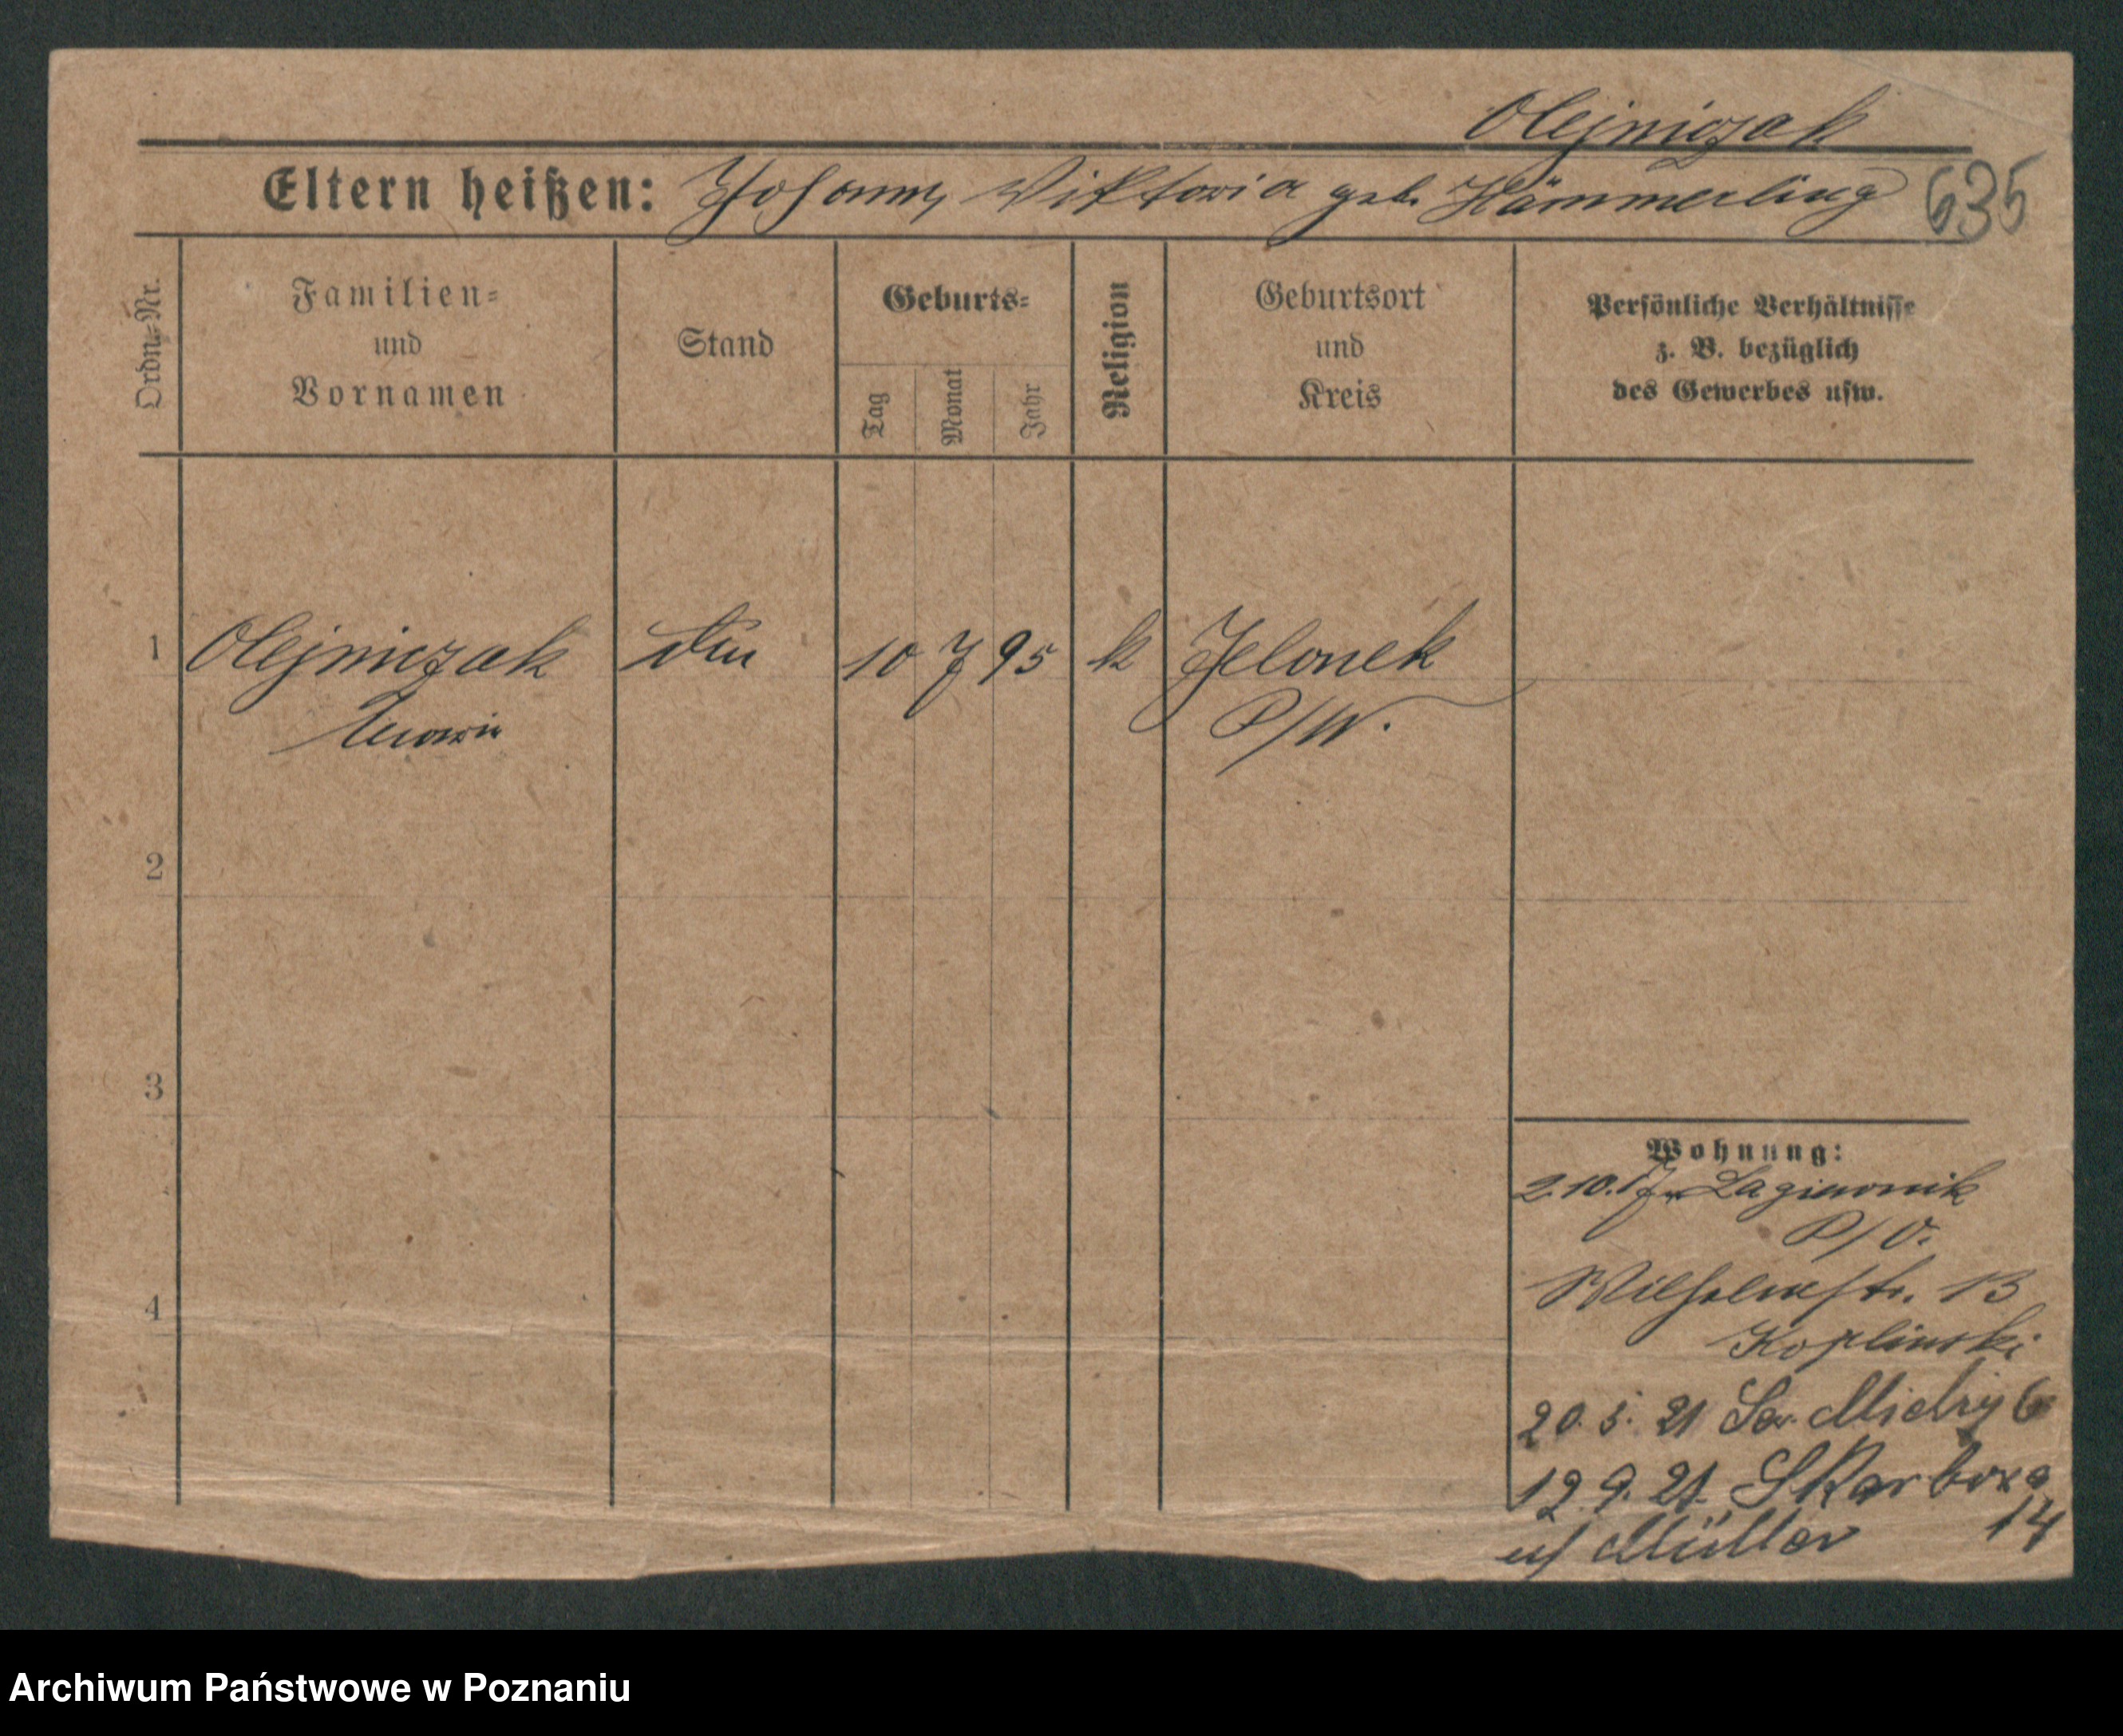 Olejniczak
Eltern heißen: Johann, Viktoria geb. Hämmerling 635
Ordn.-Nr.
Familien-
und
Vornamen
Stand
Geburts-
Tag
Monat
Jahr
Religion
Geburtsort
und
Kreis
Persönliche Verhältnisse
z. B. bezüglich
des Gewerbes usw.
1 Olejniczak 10 7 95 k Jelonek
P/W.
2
3
4
Wohnung:
2.10.17 Lagiewnik
P/O.
Wilhelmstr. 13
Koplinski
20. 5. 21 Sw. 6
12. 9. 21. Skarbowa
14
Müller
Archiwum Państwowe w Poznaniu